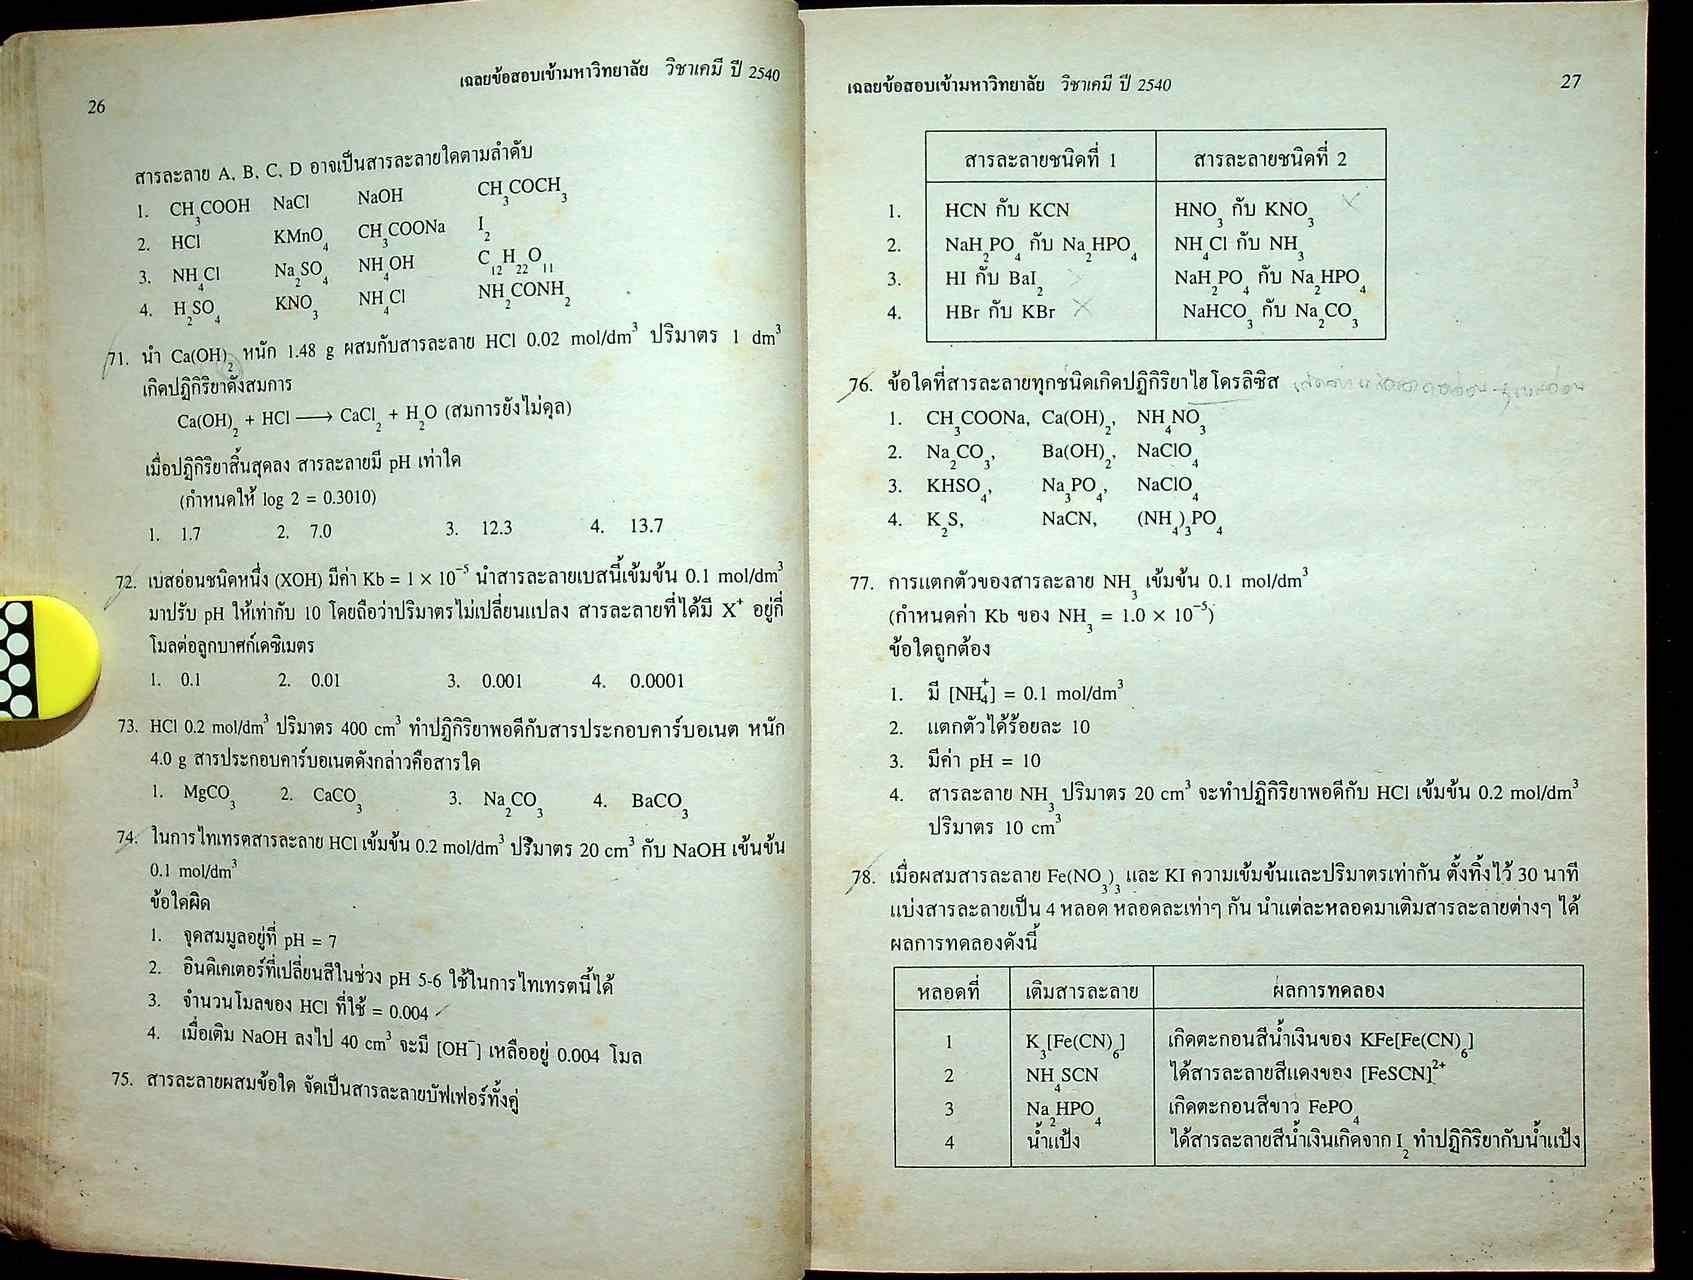 26
เฉลยข้อสอบเข้ามหาวิทยาลัย วิชาเคมี ปี 2540
สารละลาย A, B, C, D อาจเป็นสารละลายใดตามลำดับ
1. CH₃COOH NaCl NaOH CH₃COCH₃
2. HCl KMnO₄ CH₃COONa I₂
3. NH₄Cl Na₂SO₄ NH₄OH C₁₂H₂₂O₁₁
4. H₂SO₄ KNO₃ NH₄Cl NH₂CONH₂
71. นำ Ca(OH)₂ หนัก 1.48 g ผสมกับสารละลาย HCl 0.02 mol/dm³ ปริมาตร 1 dm³
เกิดปฏิกิริยาดังสมการ
Ca(OH)₂ + HCl ⟶ CaCl₂ + H₂O (สมการยังไม่ดุล)
เมื่อปฏิกิริยาสิ้นสุดลง สารละลายมี pH เท่าใด
(กำหนดให้ log 2 = 0.3010)
1. 1.7 2. 7.0 3. 12.3 4. 13.7
72. เบสอ่อนชนิดหนึ่ง (XOH) มีค่า Kb = 1 × 10⁻⁵ นำสารละลายเบสนี้เข้มข้น 0.1 mol/dm³
มาปรับ pH ให้เท่ากับ 10 โดยถือว่าปริมาตรไม่เปลี่ยนแปลง สารละลายที่ได้มี X⁺ อยู่กี่
โมลต่อลูกบาศก์เดซิเมตร
1. 0.1 2. 0.01 3. 0.001 4. 0.0001
73. HCl 0.2 mol/dm³ ปริมาตร 400 cm³ ทำปฏิกิริยาพอดีกับสารประกอบคาร์บอเนต หนัก
4.0 g สารประกอบคาร์บอเนตดังกล่าวคือสารใด
1. MgCO₃ 2. CaCO₃ 3. Na₂CO₃ 4. BaCO₃
74. ในการไทเทรตสารละลาย HCl เข้มข้น 0.2 mol/dm³ ปริมาตร 20 cm³ กับ NaOH เข้นข้น
0.1 mol/dm³
ข้อใดผิด
1. จุดสมมูลอยู่ที่ pH = 7
2. อินดิเคเตอร์ที่เปลี่ยนสีในช่วง pH 5-6 ใช้ในการไทเทรตนี้ได้
3. จำนวนโมลของ HCl ที่ใช้ = 0.004
4. เมื่อเติม NaOH ลงไป 40 cm³ จะมี [OH⁻] เหลืออยู่ 0.004 โมล
75. สารละลายผสมข้อใด จัดเป็นสารละลายบัฟเฟอร์ทั้งคู่
เฉลยข้อสอบเข้ามหาวิทยาลัย วิชาเคมี ปี 2540
27
สารละลายชนิดที่ 1 สารละลายชนิดที่ 2
1. HCN กับ KCN HNO₃ กับ KNO₃
2. NaH₂PO₄ กับ Na₂HPO₄ NH₄Cl กับ NH₃
3. HI กับ BaI₂ NaH₂PO₄ กับ Na₂HPO₄
4. HBr กับ KBr NaHCO₃ กับ Na₂CO₃
76. ข้อใดที่สารละลายทุกชนิดเกิดปฏิกิริยาไฮโดรลิซิส
1. CH₃COONa, Ca(OH)₂, NH₄NO₃
2. Na₂CO₃, Ba(OH)₂, NaClO₄
3. KHSO₄, Na₃PO₄, NaClO₄
4. K₂S, NaCN, (NH₄)₃PO₄
77. การแตกตัวของสารละลาย NH₃ เข้มข้น 0.1 mol/dm³
(กำหนดค่า Kb ของ NH₃ = 1.0 × 10⁻⁵)
ข้อใดถูกต้อง
1. มี [NH₄⁺] = 0.1 mol/dm³
2. แตกตัวได้ร้อยละ 10
3. มีค่า pH = 10
4. สารละลาย NH₃ ปริมาตร 20 cm³ จะทำปฏิกิริยาพอดีกับ HCl เข้มข้น 0.2 mol/dm³
ปริมาตร 10 cm³
78. เมื่อผสมสารละลาย Fe(NO₃)₃ และ KI ความเข้มข้นและปริมาตรเท่ากัน ตั้งทิ้งไว้ 30 นาที
แบ่งสารละลายเป็น 4 หลอด หลอดละเท่าๆ กัน นำแต่ละหลอดมาเติมสารละลายต่างๆ ได้
ผลการทดลองดังนี้
หลอดที่ เติมสารละลาย ผลการทดลอง
1 K₃[Fe(CN)₆] เกิดตะกอนสีน้ำเงินของ KFe[Fe(CN)₆]
2 NH₄SCN ได้สารละลายสีแดงของ [FeSCN]²⁺
3 Na₂HPO₄ เกิดตะกอนสีขาว FePO₄
4 น้ำแป้ง ได้สารละลายสีน้ำเงินเกิดจาก I₂ ทำปฏิกิริยากับน้ำแป้ง